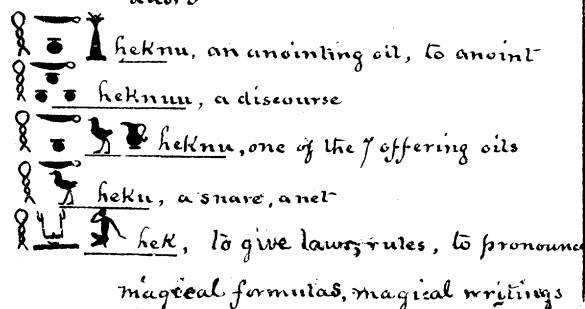 heknu, an anointing oil, to anoint
heknuu, a discourse
heknu, one of the 7 offering oils
heku, a snare, a net
hek, to give laws, rules, to pronounce
magical formulas, magical writings